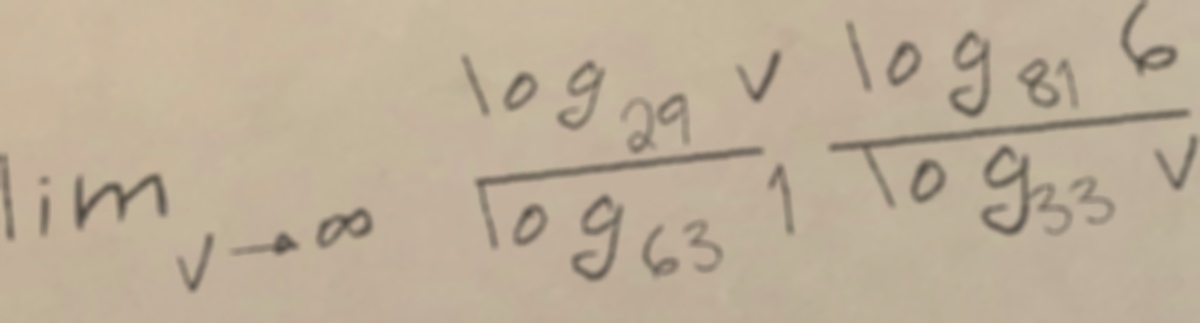 \lim_{v \to \infty} \frac{\log_{29} v}{\log_{63} 1} \frac{\log_{81} 6}{\log_{33} v}